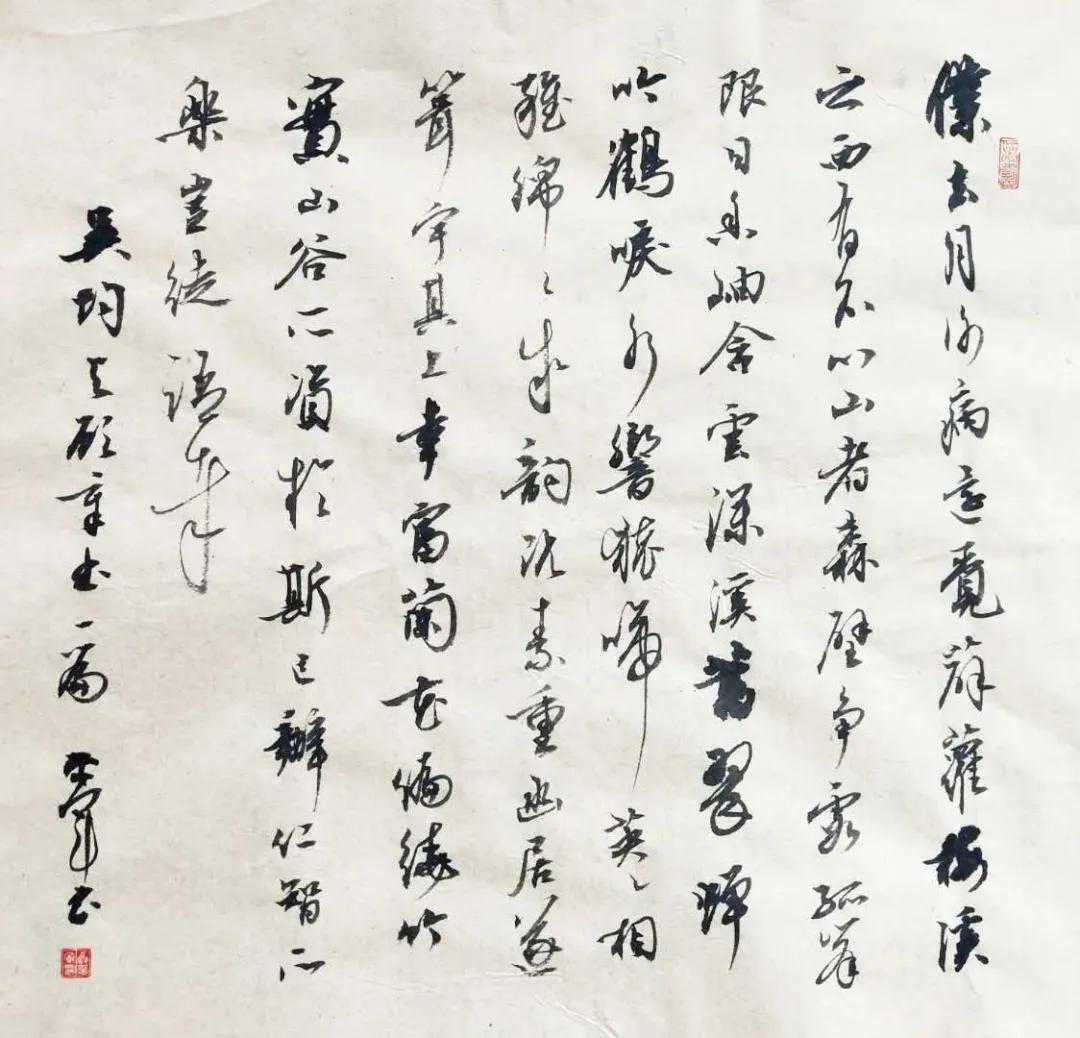 僕去月谢病還覓薜蘿梅溪
之西有石门山者森壁争霞孤峯
限日幽岫含雲深溪蓄翠蟬
吟鶴唳水響猿啼英〻相
雜綿〻成韻既素重幽居遂
葺宇其上幸富菊花偏繞竹
實山谷所資於斯已辦仁智所
樂豈徒語哉
吴均与顾章书一篇 书